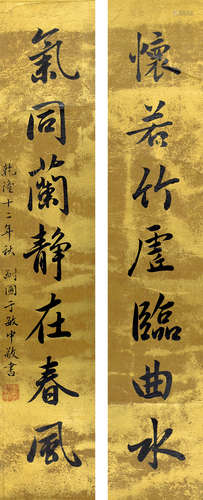 懷若竹虛臨曲水
氣同蘭靜在春風
乾隆十二年秋 耐圃于敏中敬書